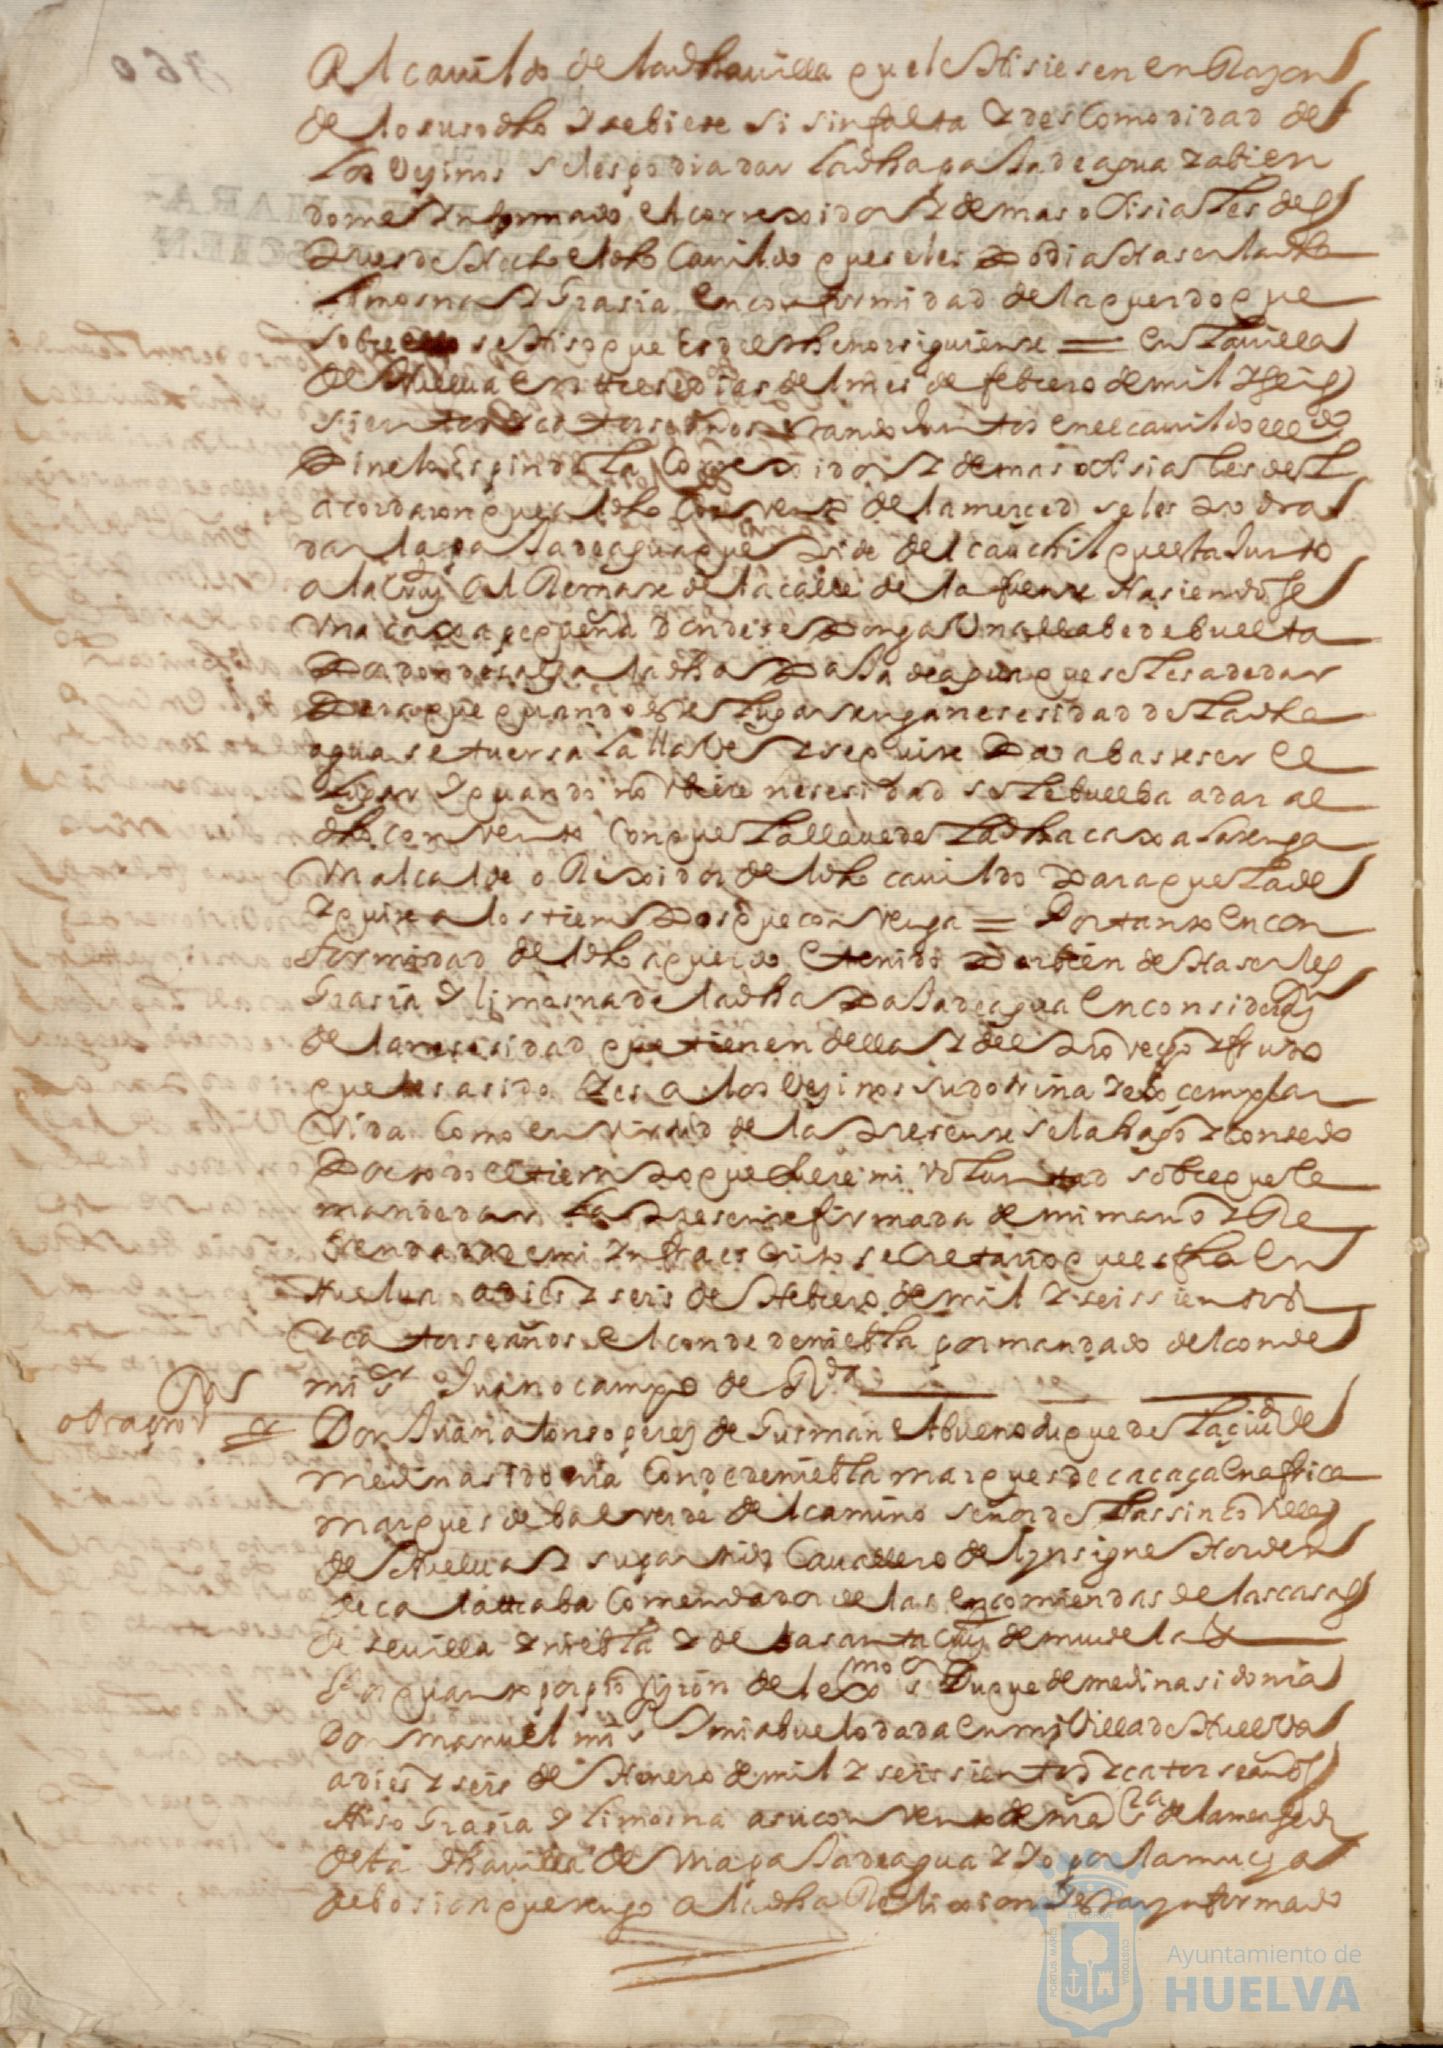 al cauildo de la dha uilla que le Hisiesen en Rason
de lo susodho y se biese si sin falta y descomodidad de
los veçinos se les podia dar la dha paja de agua y abien
dome ynformado el correxidor y demas ofisiales del
dho Cauildo que se les podia Haser la dha
limosna y Grasia en conformidad del aquerdo que
sobre ello se Hiso que es del thenor siguiente = en la uilla
de Huelua en trese dias del mes de febrero de mil y seis
sientos y catorse años estando Juntos en el cauildo el
Pinelo espindola Correxidor y demas ofisiales del
acordaron que al dho Convento de la merced se les podra
dar la paja de agua que pide del cauchil que esta Junto
a la Cruz al Remate de la calle de la fuente Hasiendose
vna caxa pequeña donde se ponga vna llabe de buelta
Por donde salga la dha Paja de agua que se les a de dar
Pero que quando este lugar tenga nesesidad de la dha
agua se tuersa la llave y se quite Para abasteser el
lugar y quando no vbiere nesesidad se le buelba a dar al
dho convento Con que la llaue de la dha caxa la tenga
vn alcalde o Rexidor del dho cauildo Para que la de
y quite a los tiempos que convenga = Por tanto en con
formidad del dho aquerdo e tenido Por bien de Haserles
Grasia y limosna de la dha Paja de agua en consideraon
de la nesesidad que tienen della y del Provecho y fruto
que les a sido y es a los veçinos su dotrina y exsemplar
vida Como en virtud de la Presente se la hago y consedo
Por todo el tiempo que fuere mi voluntad sobre que le
mande dar la Presente firmada de mi mano y Re
frendada de mi ynfraescrito secretario que es fha en
Huelua a dies y seis de Febrero de mil y seissientos
y catorse años el conde de niebla por mandado del conde
mi sr Juan ocampo de Rda
otra proon
Don Juan alonso perez de Gusman el bueno duque de la çiud de
medina sidonia Conde de niebla marques de caçaça en africa
marques de balverde del camino señor de las sinco villas
de Huelua y su partido Cauallero del ynsigne Horden
de calatraba Comendador de las encomiendas de las casas
de seuilla y niebla y de la santa cruz de mudela &
Por quanto por prouision del exmo sr Duque de medina sidonia
Don manuel mi sr y mi abuelo dada en mi Villa de Huelva
a dies y seis de Henero de mil y seis sientos y catorse años
Hiso Grasia y limosna a su convento de nra sra de la merçed
desta dha uilla de vna paja de agua y yo por la mucha
debosion que tengo a la dha Relixion y estar ynformado
Ayuntamiento de
HUELVA